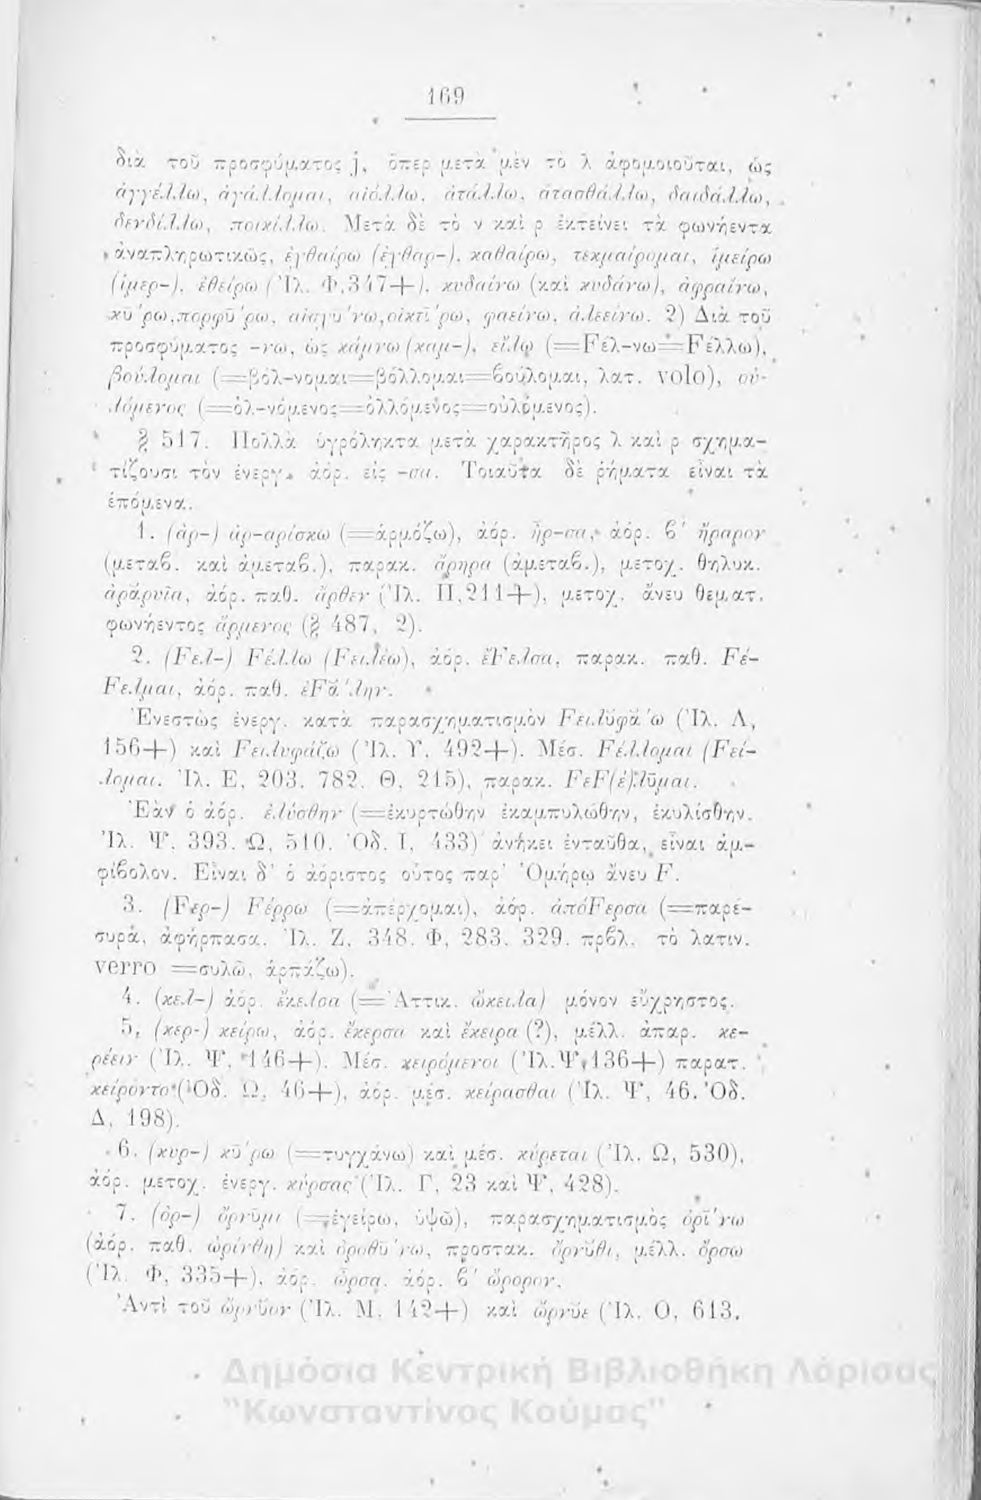 169
διὰ τοῦ προσφύματος j, ὅπερ μετὰ μὲν τὸ λ ἀφομοιοῦται, ὡς
ἀγγέλλω, ἀγάλλομαι, αἰόλλω, ἀτάλλω, ἀτασθάλλω, δαιδάλλω,
δενδίλλω, ποικίλλω. Μετὰ δὲ τὸ ν καὶ ρ ἐκτείνει τὰ φωνήεντα
ἀναπληρωτικῶς, ἐχθαίρω (ἐχθαρ-), καθαίρω, τεκμαίρομαι, ἱμείρω
(ἱμερ-), ἐθείρω (Ἰλ. Φ, 347+), κυδαίνω (καὶ κυδάνω), ἀφραίνω,
κῡ́ρω, πορφῡ́ρω, αἰσχῡ́νω, οἰκτῑ́ρω, φαείνω, ἀλεείνω. 2) Διὰ τοῦ
προσφύματος -νω, ὡς κάμνω (καμ-), εἴλω (=Fέλ-νω=Fέλλω),
βούλομαι (=βόλ-νομαι=βόλλομαι=βούλομαι, λατ. volo), οὐ-
λόμενος (=ὀλ-νόμενος=ὀλλόμενος=οὐλόμενος).
§ 517. Πολλὰ ὑγρόληκτα μετὰ χαρακτῆρος λ καὶ ρ σχημα-
τίζουσι τὸν ἐνεργ. ἀόρ. εἰς -σα. Τοιαῦτα δὲ ῥήματα εἶναι τὰ
ἑπόμενα.
1. (ἀρ-) ἀρ-αρίσκω (=ἁρμόζω), ἀόρ. ἦρ-σα, ἀόρ. β′ ἤραρον
(μεταβ. καὶ ἀμεταβ.), παρακ. ἄρηρα (ἀμεταβ.), μετοχ. θηλυκ.
ἀρᾰρυῖα, ἀόρ. παθ. ἄρθεν (Ἰλ. Π, 211+), μετοχ. ἄνευ θεματ.
φωνήεντος ἄρμενος (§ 487, 2).
2. (Fελ-) Fέλλω (Fειλέω), ἀόρ. ἔFελσα, παρακ. παθ. Fέ-
Fελμαι, ἀόρ. παθ. ἐFᾰ́λην.
Ἐνεστὼς ἐνεργ. κατὰ παρασχηματισμὸν Fειλῡφᾰ́ω (Ἰλ. Λ,
156+) καὶ Fειλυφάζω (Ἰλ. Υ, 492+). Μέσ. Fέλλομαι (Fεί-
λομαι. Ἰλ. Ε, 203. 782. Θ, 215), παρακ. FεF(έ)λῡμαι.
Ἐὰν ὁ ἀόρ. ἐλύσθην (=ἐκυρτώθην ἐκαμπυλώθην, ἐκυλίσθην.
Ἰλ. Ψ, 393. Ω, 510. Ὀδ. Ι, 433) ἀνήκει ἐνταῦθα, εἶναι ἀμ-
φίβολον. Εἶναι δ' ὁ ἀόριστος οὗτος παρ' Ὁμήρῳ ἄνευ F.
3. (Fερ-) Fέρρω (=ἀπέρχομαι), ἀόρ. ἀπόFερσα (=παρέ-
συρα, ἀφήρπασα. Ἰλ. Ζ, 348. Φ, 283. 329. πρβλ. τὸ λατιν.
verro =συλῶ, ἁρπάζω).
4. (κελ-) ἀόρ. ἔκελσα (=Ἀττικ. ὤκειλα) μόνον εὔχρηστος.
5. (κερ-) κείρω, ἀόρ. ἔκερσα καὶ ἔκειρα (?), μέλλ. ἀπαρ. κε-
ρέειν (Ἰλ. Ψ, 146+). Μέσ. κειρόμενοι (Ἰλ. Ψ, 136+) παρατ.
κείροντο (Ὀδ. Ω, 46+), ἀόρ. μέσ. κείρασθαι (Ἰλ. Ψ, 46. Ὀδ.
Δ, 198).
6. (κυρ-) κῡ́ρω (=τυγχάνω) καὶ μέσ. κύρεται (Ἰλ. Ω, 530),
ἀόρ. μετοχ. ἐνεργ. κύρσας (Ἰλ. Γ, 23 καὶ Ψ, 428).
7. (ὀρ-) ὄρνῡμι (=ἐγείρω, ὑψῶ), παρασχηματισμὸς ὀρῑ́νω
(ἀόρ. παθ. ὠρίνθη) καὶ ὀροθῡ́νω, προστακ. ὄρνῡθι, μέλλ. ὄρσω
(Ἰλ. Φ, 335+), ἀόρ. ὦρσα, ἀόρ. β′ ὤρορον.
Ἀντὶ τοῦ ὤρνῠον (Ἰλ. Μ, 142+) καὶ ὤρνῠε (Ἰλ. Ο, 613.
Δημόσια Κεντρική Βιβλιοθήκη Λάρισας
"Κωνσταντίνος Κούμας"